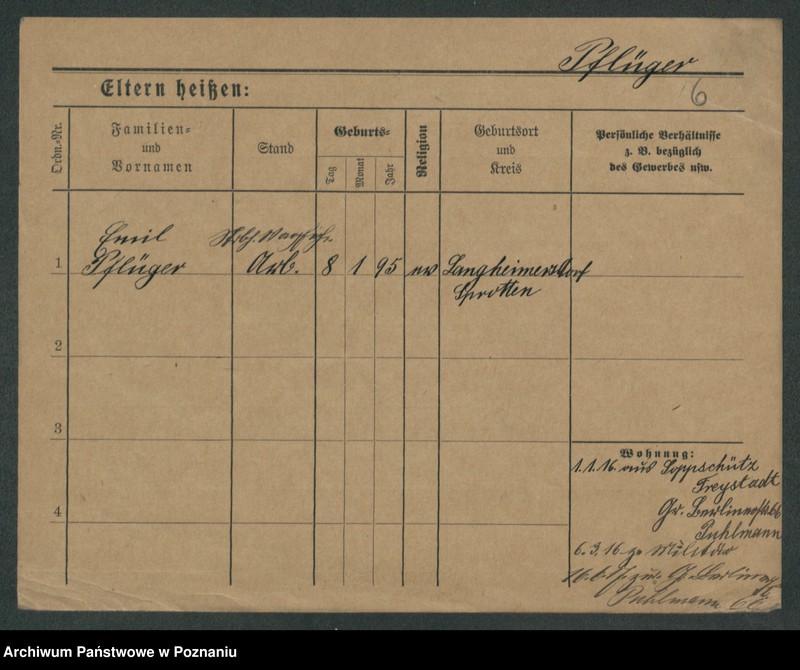 Pflüger
6
Eltern heißen:
Ordn.-Nr.
Familien-
und
Vornamen
Stand
Geburts-
Tag
Monat
Jahr
Religion
Geburtsort
und
Kreis
Persönliche Verhältnisse
z. B. bezüglich
des Gewerbes usw.
Emil
1 Pflüger Arb. 8 1 95 ev Langheinersdorf
Sprotten
2
3
4
Wohnung:
1.1.16. aus Loppschütz
Freystadt
Gr. Berlinerstr. 66
Puhlmann
6.3.16 zu Militär
Gr. Berliner
Puhlmann 66
Archiwum Państwowe w Poznaniu